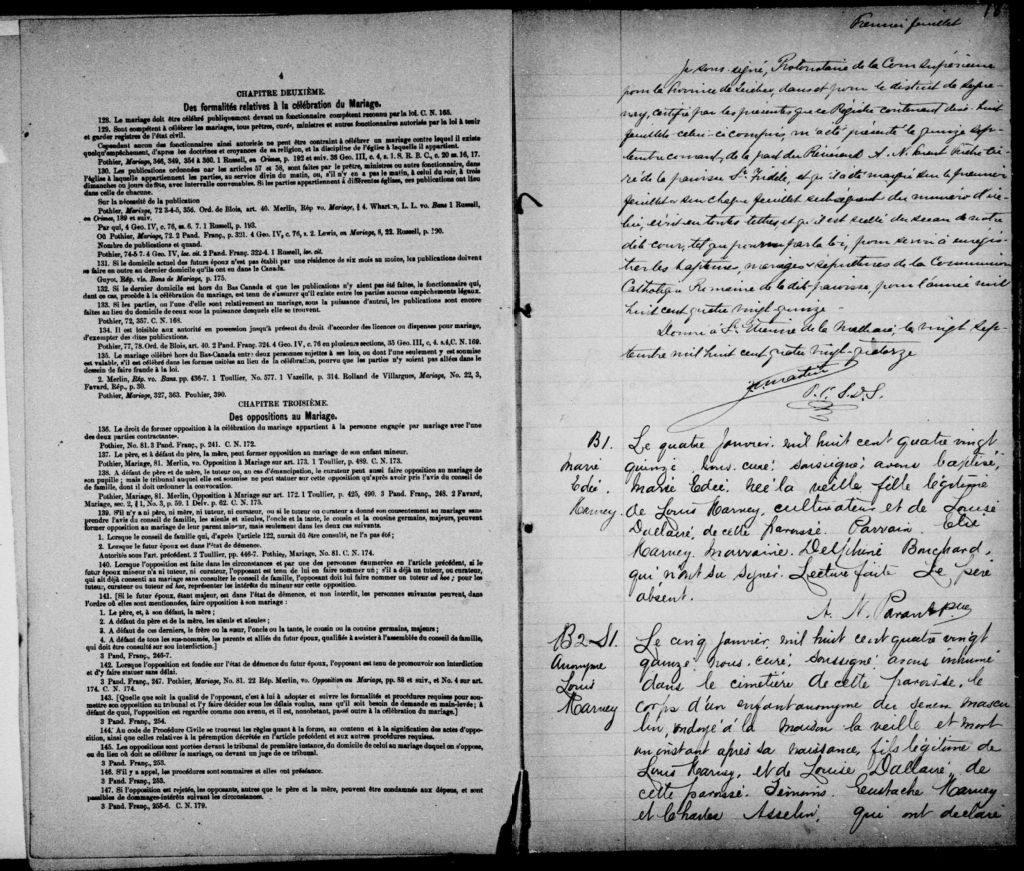 4
CHAPITRE DEUXIÈME.
Des formalités relatives à la célébration du Mariage.
128. Le mariage doit être célébré publiquement devant un fonctionnaire compétent reconnu par la loi. C. N. 165.
129. Sont compétents à célébrer les mariages, tous prêtres, curés, ministres et autres fonctionnaires autorisés par la loi à tenir
et garder registres de l'état civil.
Cependant aucun des fonctionnaires ainsi autorisés ne peut être contraint à célébrer un mariage contre lequel il existe
quelqu'empêchement, d'après les doctrines et croyances de sa religion, et la discipline de l'église à laquelle il appartient.
Pothier, Mariage, 346, 349, 354 & 300. 1 Russell, on Crimes, p. 192 et suiv. 36 Geo. III, c. 4, s. 1. S. R. B. C., c. 20 ss. 16, 17.
130. Les publications ordonnées par les articles 57 et 58, sont faites par le prêtre, ministre ou autre fonctionnaire, dans
l'église à laquelle appartiennent les parties, au service divin du matin, ou, s'il n'y en a pas le matin, à celui du soir, à trois
dimanches ou jours de fête, avec intervalle convenables. Si les parties appartiennent à différentes églises, ces publications ont lieu
dans celle de chacune.
Sur la nécessité de la publication
Pothier, Mariage, 72 3-4-5, 356. Ord. de Blois, art. 40. Merlin, Rép vo. Mariage, § 4. Whart n, L. L. vo. Bans 1 Russell,
on Crimes, 189 et suiv.
Par qui, 4 Geo. IV, c. 76, ss. 6, 7. 1 Russell, p. 193.
Où Pothier, Mariage, 72. 2 Pand. Franç., p. 321. 4 Geo. IV, c. 76, s. 2. Lewis, on Mariage, 8, 22. Russell, p. 190.
Nombre de publications et quand.
Pothier, 74-5 7. 4 Geo. IV, loc. cit. 2 Pand. Franç. 322-4. 1 Russell, loc. cit.
131. Si le domicile actuel des futurs époux n'est pas établi par une résidence de six mois au moins, les publications doivent
se faire en outre au dernier domicile qu'ils ont eu dans le Canada.
Guyot, Rép. vis. Bans de Mariage, p. 175.
132. Si le dernier domicile est hors du Bas Canada et que les publications n'y aient pas été faites, le fonctionnaire qui,
dans ce cas, procède à la célébration du mariage, est tenu de s'assurer qu'il existe entre les parties aucuns empêchements légaux.
133. Si les parties, ou l'une d'elles sont relativement au mariage, sous la puissance d'autrui, les publications sont encore
faites au lieu du domicile de ceux sous la puissance desquels elle se trouvent.
Pothier, 72, 357. C. N. 168.
134. Il est loisible aux autorités en possession jusqu'à présent du droit d'accorder des licences ou dispenses pour mariage,
d'exempter des dites publications.
Pothier, 77, 78. Ord. de Blois, art. 40. 2 Pand. Franç. 324. 4 Geo. IV, c. 76 en plusieurs sections, 35 Geo. III, c. 4. s.4, C. N. 169.
135. Le mariage célébré hors du Bas-Canada entre deux personnes sujettes à ses lois, ou dont l'une seulement y est soumise
est valable, s'il est célébré dans les formes usitées au lieu de la célébration, pourvu que les parties n'y soient pas allées dans le
dessein de faire fraude à la loi.
2. Merlin, Rép. vo. Bans. pp. 436-7. 1 Toullier, No. 577. 1 Vazeille, p. 314. Rolland de Villargues, Mariage, No. 22, 3,
Favard, Rép., p. 30.
Pothier, Mariage, 327, 363. Pouhier, 390.
CHAPITRE TROISIÈME.
Des oppositions au Mariage.
136. Le droit de former opposition à la célébration du mariage appartient à la personne engagée par mariage avec l'une
des deux parties contractantes.
Pothier, No. 81. 3 Pand. Franç., p. 241. C. N. 172.
137. Le père, et à défaut du père, la mère, peut former opposition au mariage de son enfant mineur.
Pothier, Mariage, 81. Merlin, vo. Opposition à Mariage sur art. 173. 1 Toullier, p. 489. C. N. 173.
138. A défaut de père et de mère, le tuteur ou, au cas d'émancipation, le curateur peut aussi faire opposition au mariage de
son pupille ; mais le tribunal auquel elle est soumise ne peut statuer sur cette opposition qu'après avoir pris l'avis du conseil de
famille, dont il doit ordonner la convocation.
Pothier, Mariage, 81. Merlin, Opposition à Mariage sur art. 172. 1 Toullier, p. 425, 490. 3 Pand. Franç., 248. 2 Favard,
Mariage, sec. 2, § 1, No. 3, p. 59. 1 Delv. p. 62. C. N. 175.
139. S'il n'y a ni père, ni mère, ni tuteur, ni curateur, ou si le tuteur ou curateur a donné son consentement au mariage sans
prendre l'avis du conseil de famille, les aïeuls et aïeules, l'oncle et la tante, le cousin et la cousine germains, majeurs, peuvent
former opposition au mariage de leur parent mineur, mais seulement dans les deux cas suivants.
1. Lorsque le conseil de famille qui, d'après l'article 122, aurait dû être consulté, ne l'a pas été ;
2. Lorsque le futur époux est dans l'état de démence.
Autorités sous l'art. précédent. 2 Toullier, pp. 446-7. Pothier, Mariage, No. 81. C. N. 174.
140. Lorsque l'opposition est faite dans les circonstances et par une des personnes énumérées en l'article précédent, si le
futur époux mineur n'a ni tuteur, ni curateur, l'opposant est tenu de lui en faire nommer un ; s'il a déjà un tuteur, ou curateur,
qui ait déjà consenti au mariage sans consulter le conseil de famille, l'opposant doit lui faire nommer un tuteur ad hoc ; pour les
tuteur, curateur ou tuteur ad hoc, représenter les intérêts du mineur sur cette opposition.
141. [Si le futur époux, étant majeur, est dans l'état de démence, et non interdit, les personnes suivantes peuvent, dans
l'ordre où elles sont mentionnées, faire opposition à son mariage :
1. Le père, et, à son défaut, la mère ;
2. A défaut du père et de la mère, les aïeuls et aïeules ;
3. A défaut de ces derniers, le frère ou la sœur, l'oncle ou la tante, le cousin ou la cousine germains, majeurs ;
4. A défaut de tous les sus-nommés, les parents et alliés du futur époux, qualifiés à assister à l'assemblée du conseil de famille,
qui doit être consulté sur son interdiction.]
3 Pand, Franç., 246-7.
142. Lorsque l'opposition est fondée sur l'état de démence du futur époux, l'opposant est tenu de promouvoir son interdiction
et d'y faire statuer sans délai.
3 Pand, Franç., 247. Pothier, Mariage, No. 81. 22 Rép. Merlin, vo. Opposition au Mariage, pp. 88 et suiv., et No. 4 sur art.
174. C. N. 174.
143. [Quelle que soit la qualité de l'opposant, c'est à lui à adopter et suivre les formalités et procédures requises pour sou-
mettre son opposition au tribunal et l'y faire décider sous les délais voulus, sans qu'il soit besoin de demande en main-levée ; à
défaut de quoi, l'opposition est regardée comme non avenu, et il est, nonobstant, passé outre à la célébration du mariage.]
3 Pand. Franç., 254.
144. Au code de Procédure Civile se trouvent les règles quant à la forme, au contenu et à la signification des actes d'oppo-
sition, ainsi que celles relatives à la péremption décrétée en l'article précédent et aux autres procédures requises.
145. Les oppositions sont portées devant le tribunal de première instance, du domicile de celui au mariage duquel on s'oppose,
ou du lieu où doit se célébrer le mariage, ou devant un juge de ce tribunal.
3 Pand. Franç., 253.
146. S'il y a appel, les procédures sont sommaires et elles ont préséance.
3 Pand. Franç., 253.
147. Si l'opposition est rejetée, les opposants, autres que le père et la mère, peuvent être condamnés aux dépens, et sont
passibles de dommages-intérêts suivant les circonstances.
3 Pand. Franç., 255-6. C. N. 179.
Premier feuillet
Je sous-signé, Protonotaire de la Cour Supérieure
pour la Province de Québec, dans et pour le district de Sague-
nay, certifie par les présentes que ce Registre contenant dix-huit
feuillets celui-ci compris m'a été présenté le quinze sep-
tembre courant, de la part du Révérend A. N. Parent Prêtre Cu-
ré de la paroisse St Fidèle, et qu'il a été marqué sur le premier
feuillet & sur chaque feuillet subséquent du numéro d'icelui,
écrit en toutes lettres et qu'il est scellé du sceau de notre
dite cour, tel que pourvu par la loi, pour servir à enregis-
trer les baptêmes, mariages & sépultures de la Communion
Catholique Romaine de la dite paroisse, pour l'année mil
huit cent quatre vingt quinze
Donné à St Etienne de la Malbaie, le vingt sep-
tembre mil huit cent quatre vingt-quatorze
P. C. S. D. S.
B1. Le quatre Janvier mil huit cent quatre vingt
Marie quinze, nous curé, soussigné, avons baptisé,
Edée Marie Edée. née la veille fille légitime
Harvey de Louis Harvey, cultivateur et de Louise
Dallaire, de cette paroisse. Parrain. Elie
Harvey, marraine. Delphine Bouchard,
qui n'ont su signer. Lecture faite. Le père
absent.
A. N. Parant Ptre
B2-S1. Le cinq Janvier mil huit cent quatre vingt
Anonyme quinze nous, curé, soussigné avons inhumé
Louis dans le cimetière de cette paroisse, le
Harvey corps d'un enfant anonyme du sexe mascu
lin, ondoyé à la maison la veille et mort
un instant après sa naissance, fils légitime de
Louis Harvey, et de Louise Dallaire, de
cette paroisse. Témoins. Eustache Harvey
et Charles Asselin, qui ont déclaré